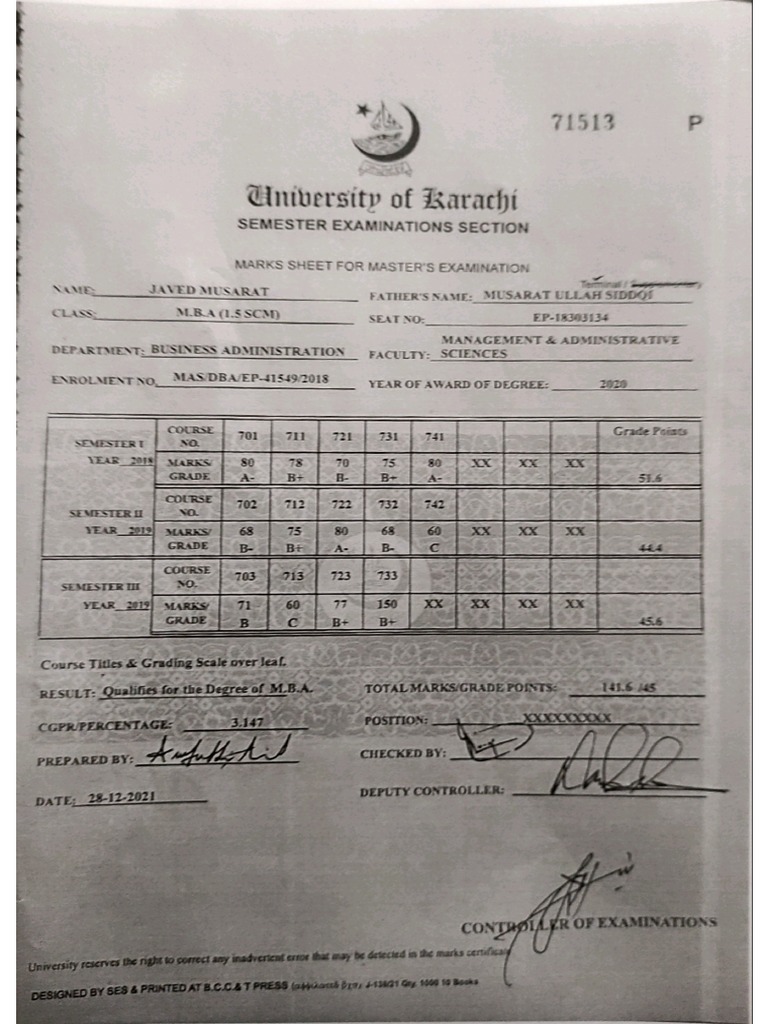 71513 P
University of Karachi
SEMESTER EXAMINATIONS SECTION
MARKS SHEET FOR MASTER'S EXAMINATION
Terminal / Supplementary
NAME: JAVED MUSARAT FATHER'S NAME: MUSARAT ULLAH SIDDQI
CLASS: M.B.A (1.5 SCM) SEAT NO: EP-18303134
DEPARTMENT: BUSINESS ADMINISTRATION FACULTY: MANAGEMENT & ADMINISTRATIVE SCIENCES
ENROLMENT NO. MAS/DBA/EP-41549/2018 YEAR OF AWARD OF DEGREE: 2020
SEMESTER I YEAR 2018 COURSE NO. 701 711 721 731 741 Grade Points
MARKS/ 80 78 70 75 80 XX XX XX
GRADE A- B+ B- B+ A- 51.6
SEMESTER II YEAR 2019 COURSE NO. 702 712 722 732 742
MARKS/ 68 75 80 68 60 XX XX XX
GRADE B- B+ A- B- C 44.4
SEMESTER III YEAR 2019 COURSE NO. 703 713 723 733
MARKS/ 71 60 77 150 XX XX XX XX
GRADE B C B+ B+ 45.6
Course Titles & Grading Scale over leaf.
RESULT: Qualifies for the Degree of M.B.A. TOTAL MARKS/GRADE POINTS: 141.6 /45
CGPR/PERCENTAGE: 3.147 POSITION: XXXXXXXXX
PREPARED BY: CHECKED BY:
DATE: 28-12-2021 DEPUTY CONTROLLER:
CONTROLLER OF EXAMINATIONS
University reserves the right to correct any inadvertent error that may be detected in the marks certificate
DESIGNED BY SES & PRINTED AT B.C.C.& T PRESS J-138/21 Qty. 1000 10 Books